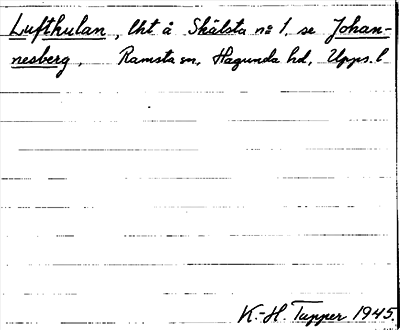 Lufthulan, lht å Skälsta nº 1, se Johan-
nesberg, Ramsta sn, Hagunda hd, Upps. l
K.-H. Tapper 1945.